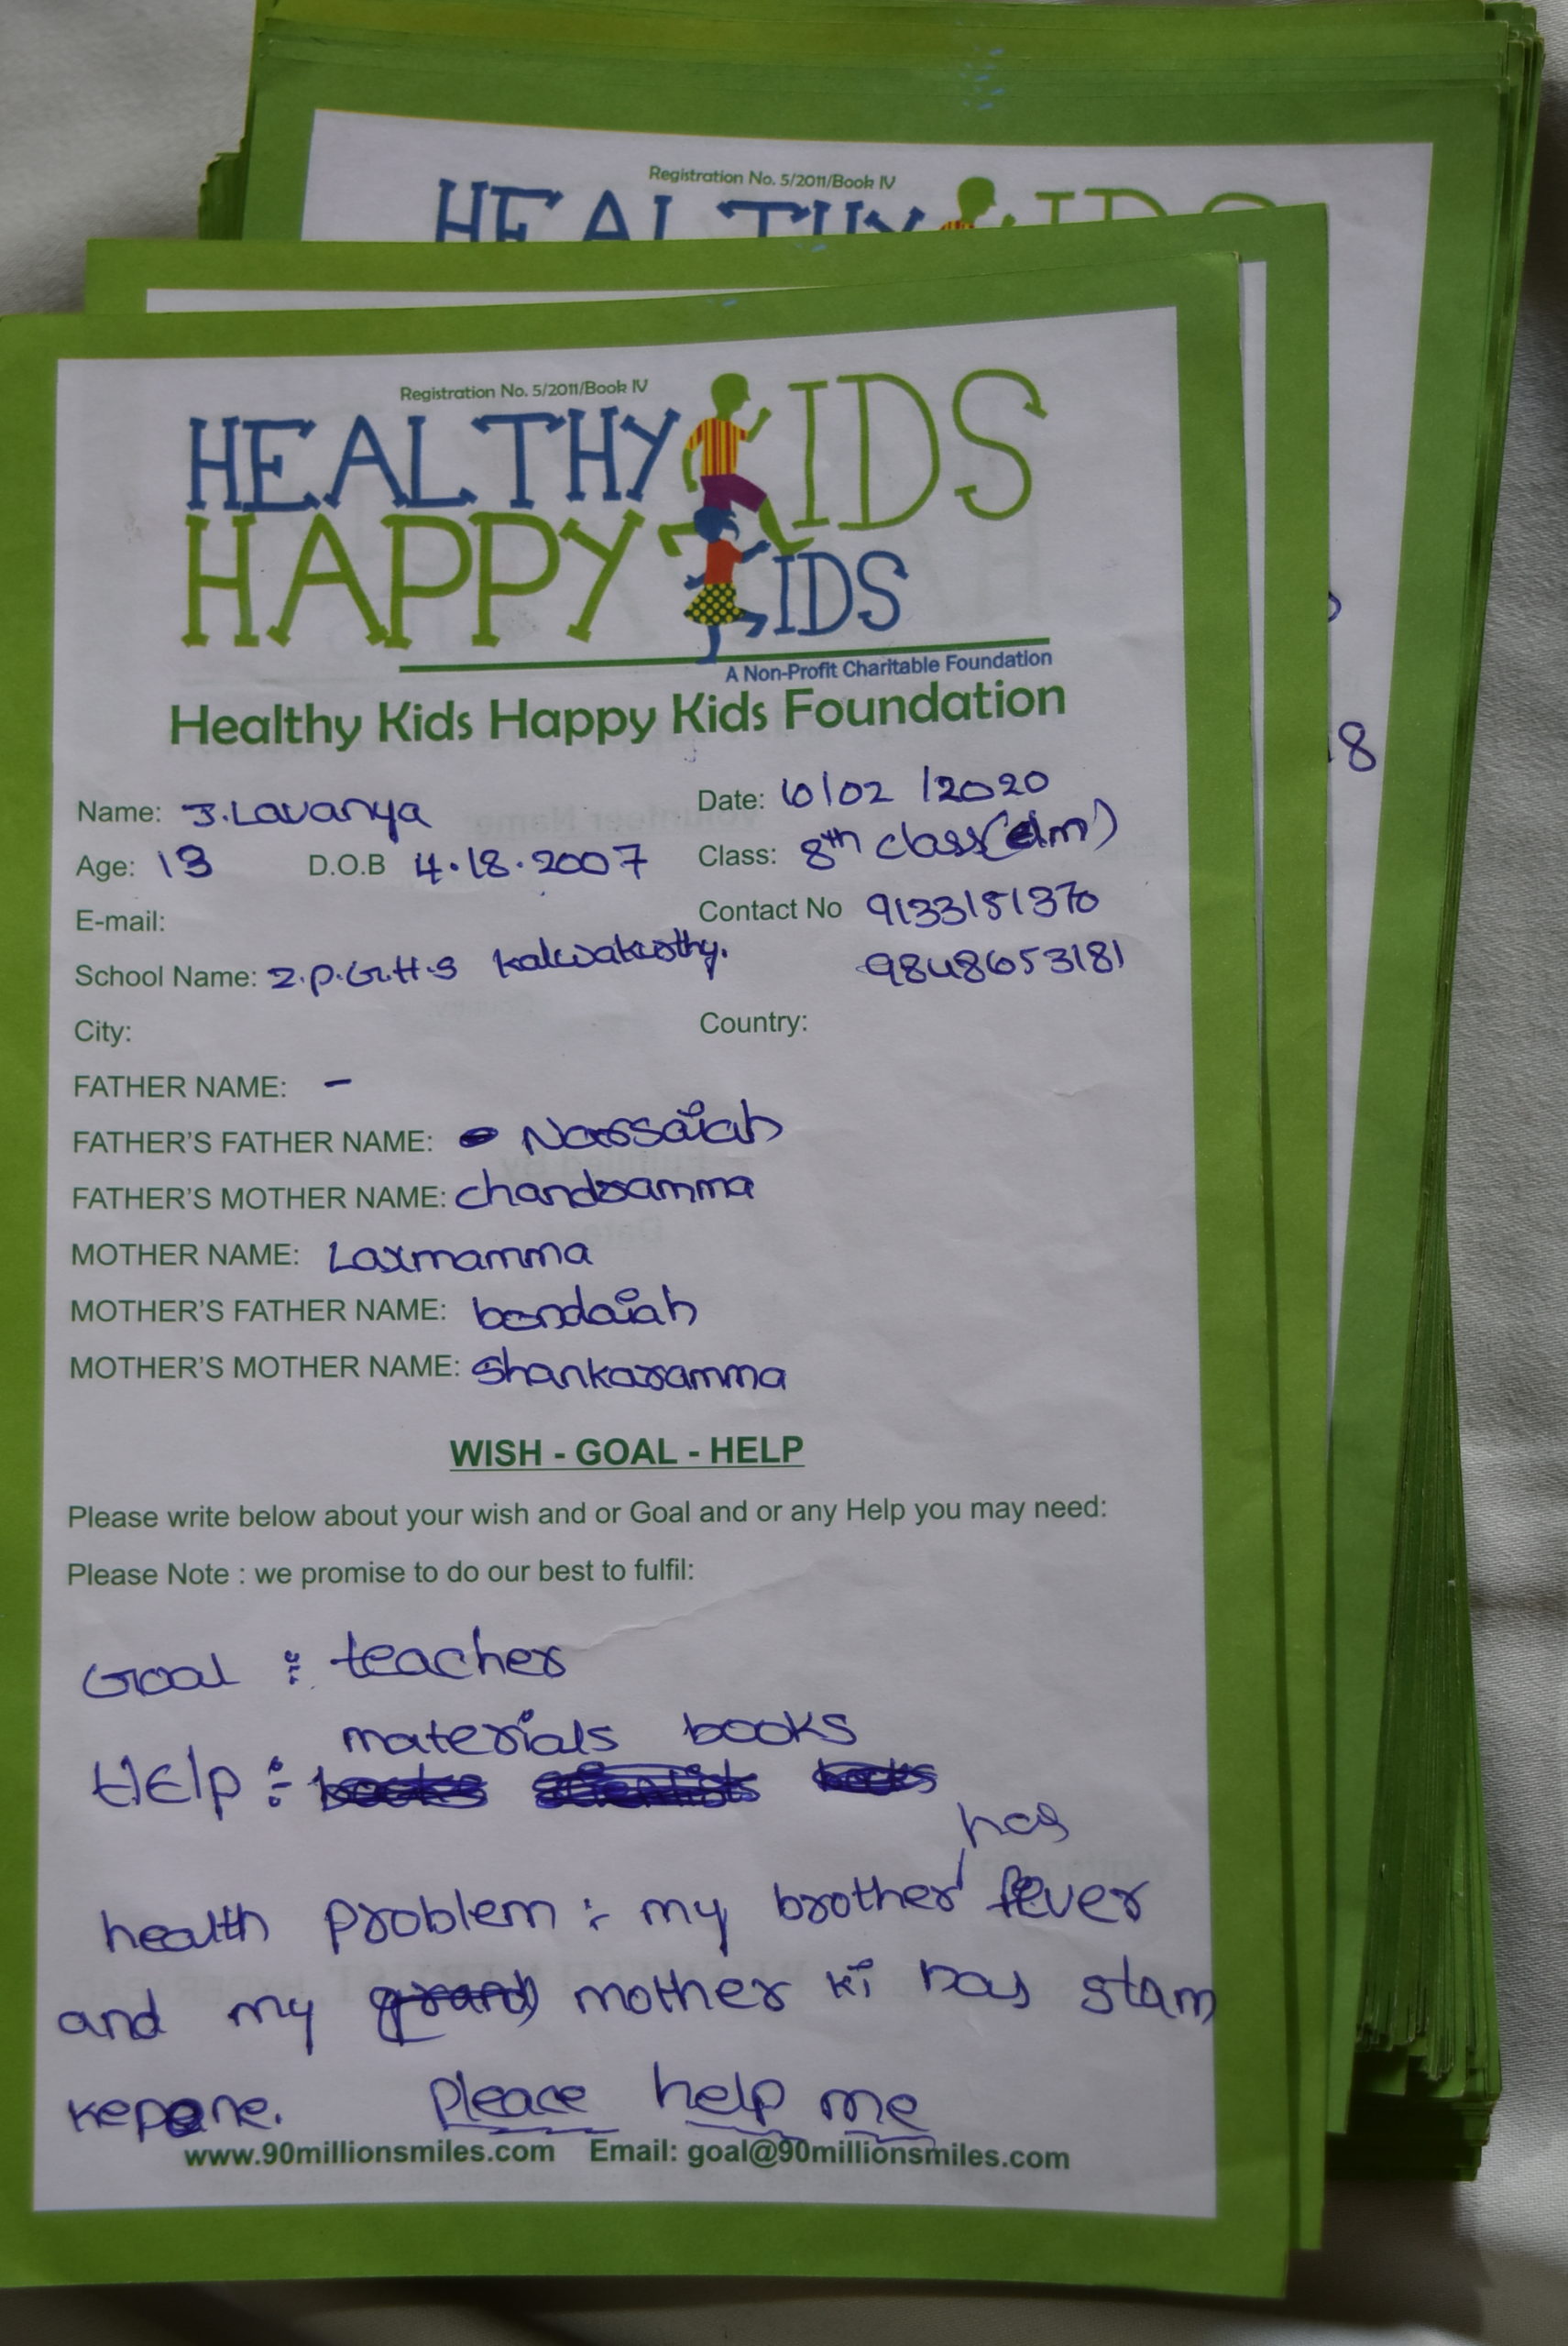 Registration No. 5/2011/Book IV
HEALTHY KIDS
Registration No. 5/2011/Book IV
HEALTHY KIDS
HAPPY KIDS
A Non-Profit Charitable Foundation
Healthy Kids Happy Kids Foundation
Name: J.Lavanya Date: 6/02/2020
Age: 13 D.O.B 4.18.2007 Class: 8th class(e/m)
E-mail: Contact No 9133151370
School Name: Z.P.G.H.S Kalwakurthy. 9848653181
City: Country:
FATHER NAME: -
FATHER'S FATHER NAME: Narsaiah
FATHER'S MOTHER NAME: chandramma
MOTHER NAME: Laxmamma
MOTHER'S FATHER NAME: bandaiah
MOTHER'S MOTHER NAME: Shankaramma
WISH - GOAL - HELP
Please write below about your wish and or Goal and or any Help you may need:
Please Note : we promise to do our best to fulfil:
Goal : teacher
materials books
HElp :- books scientists books
has
health problem :- my brother fever
and my grand mother ki has stam
kepone. Pleace help me
www.90millionsmiles.com Email: goal@90millionsmiles.com
18